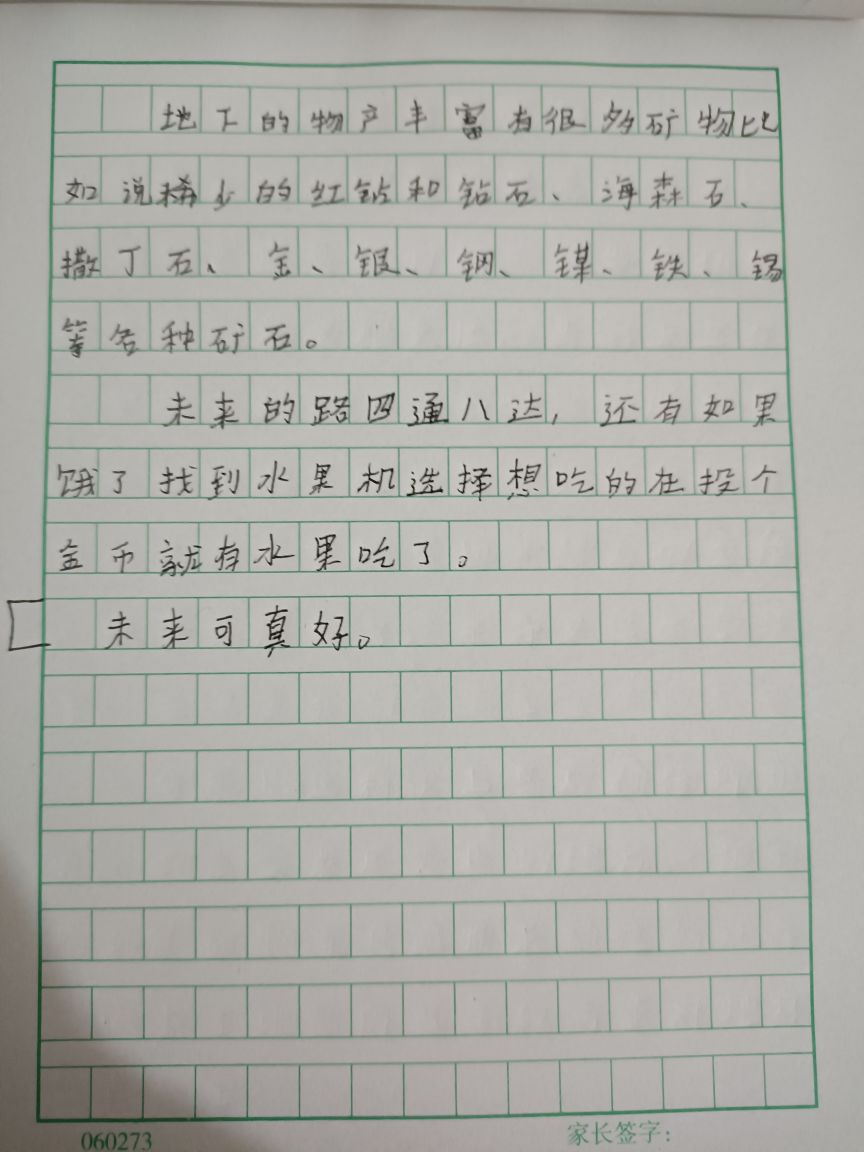 地下的物产丰富有很多矿物比
如说稀少的红钻和钻石、海森石、
撒丁石、金、银、钢、镁、铁、锡
等各种矿石。
未来的路四通八达，还有如果
饿了找到水果机选择想吃的在投个
金币就有水果吃了。
未来可真好。
060273
家长签字：